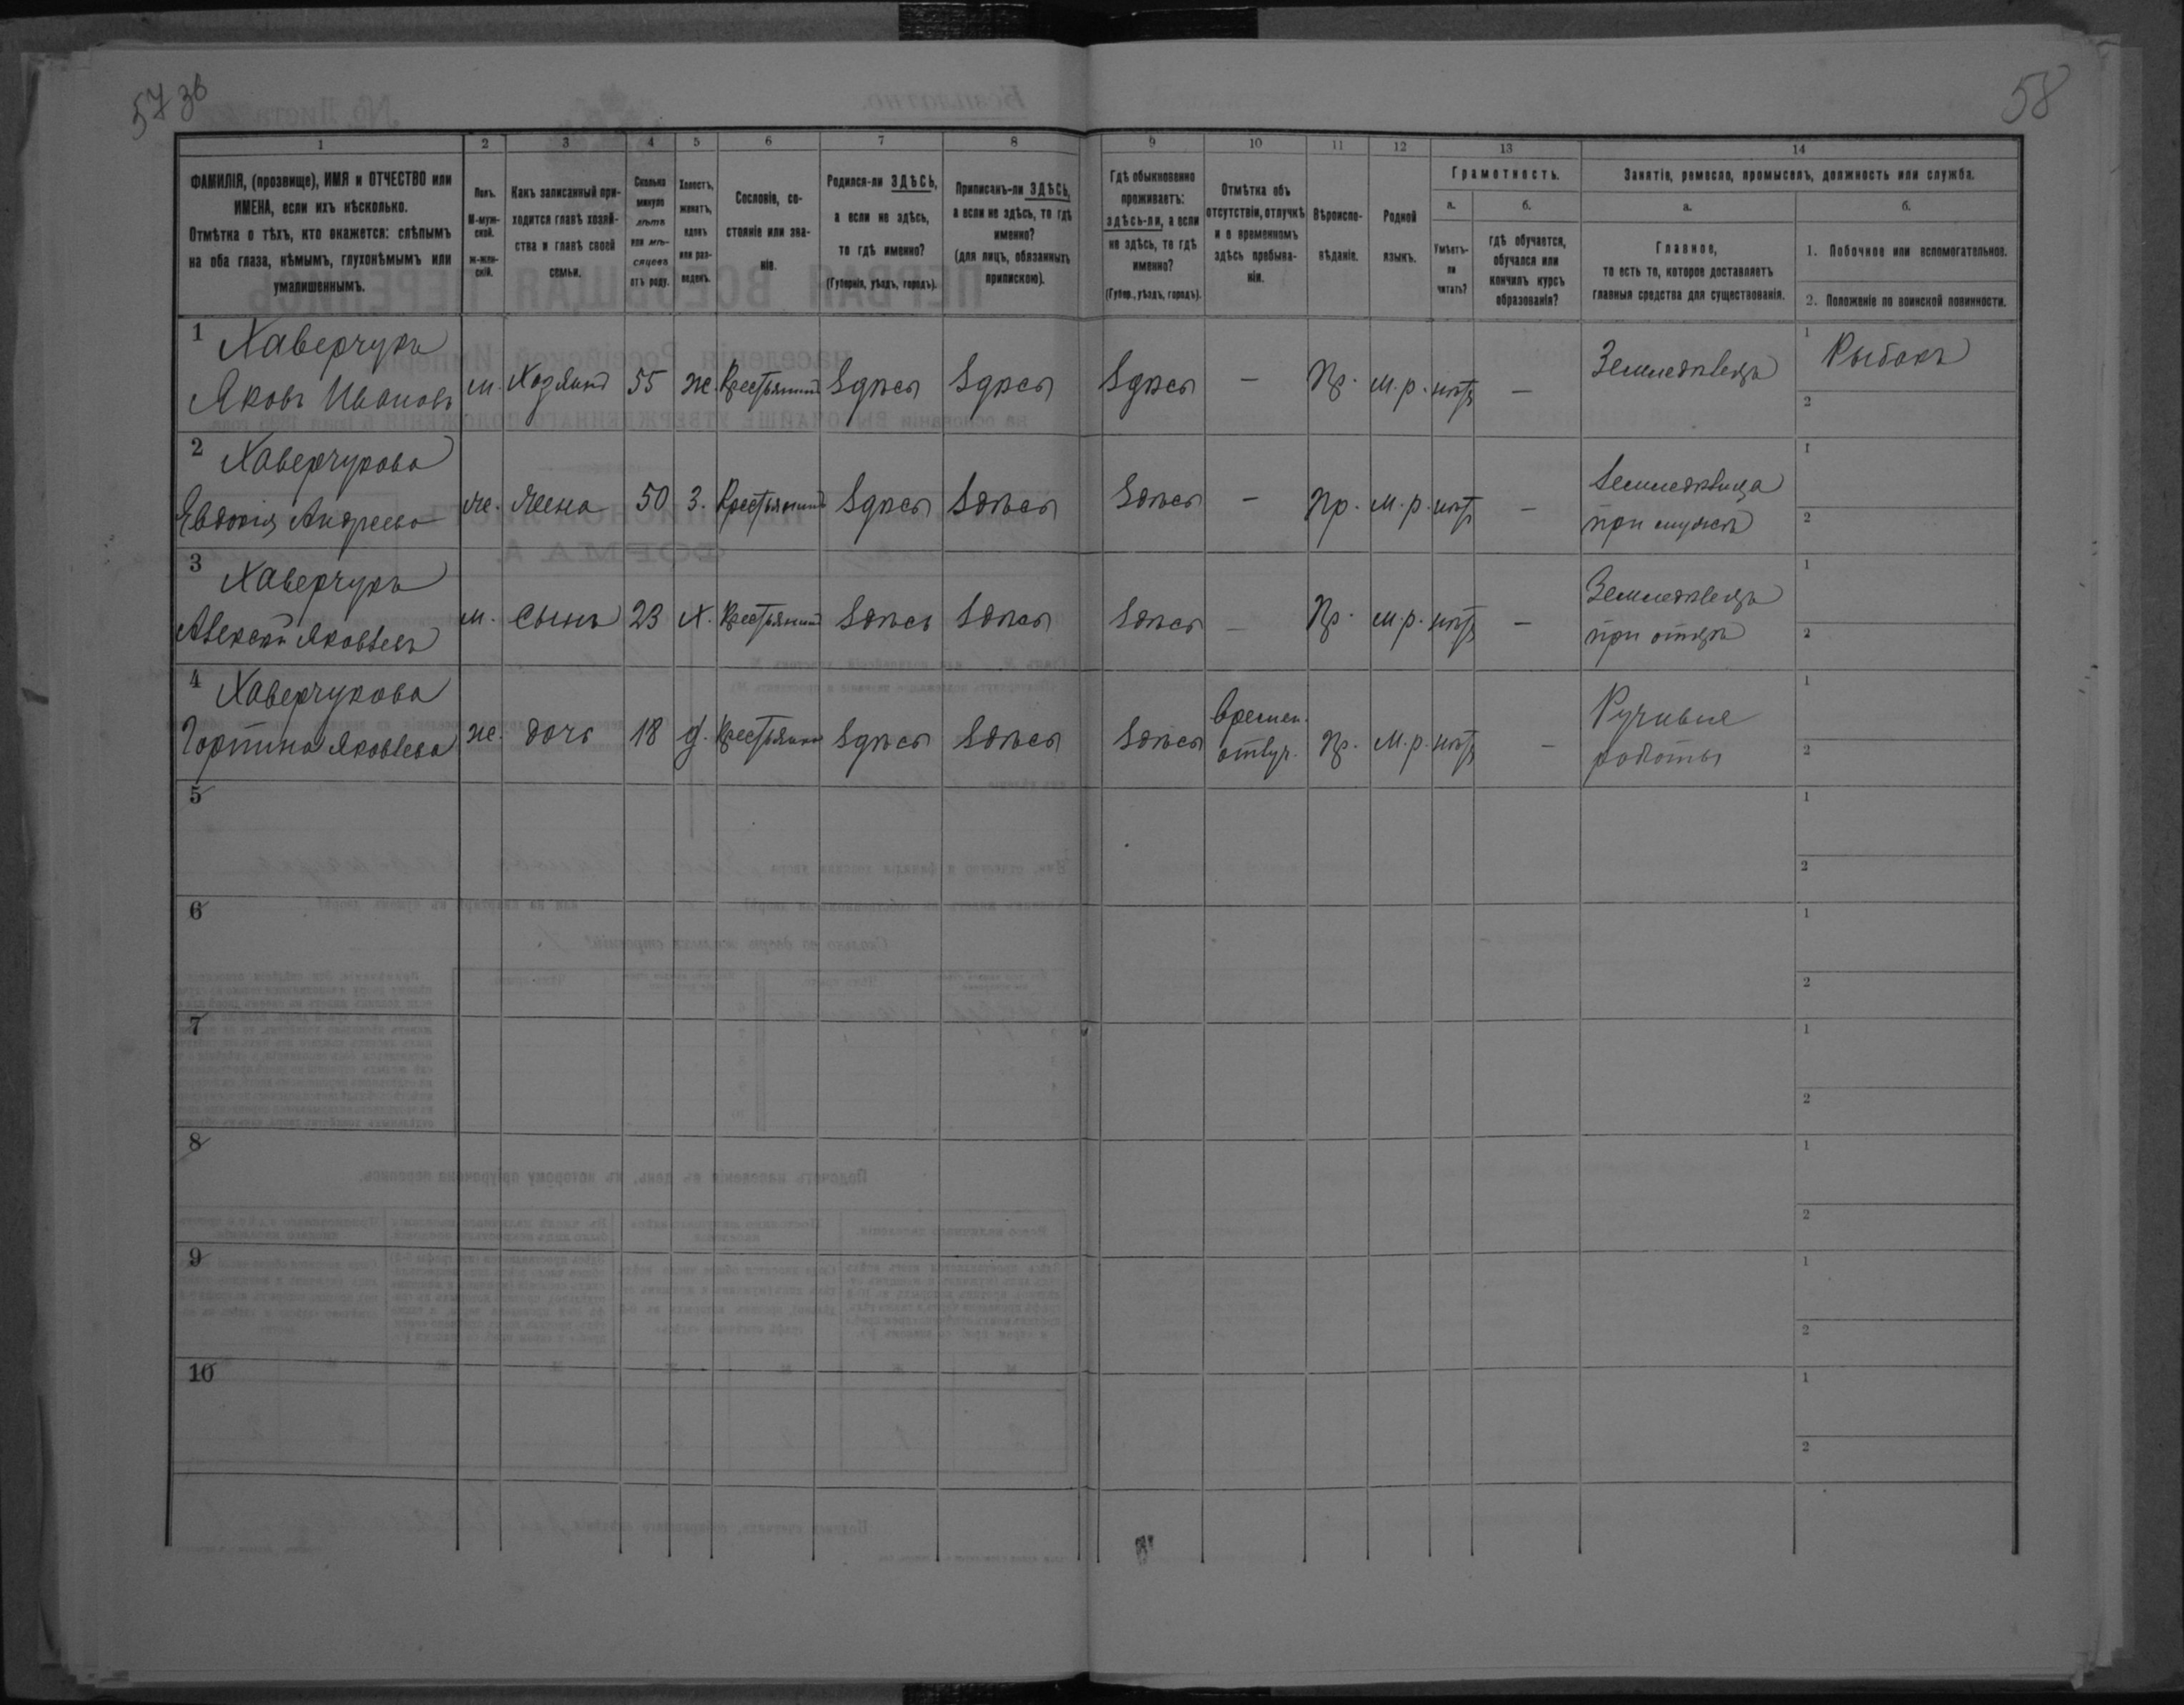 57 зб
58
1 2 3 4 5 6 7 8 9 10 11 12 13 14
ФАМИЛІЯ, (прозвище), ИМЯ и ОТЧЕСТВО или ИМЕНА, если ихъ нѣсколько.
Отмѣтка о тѣхъ, кто окажется: слѣпымъ на оба глаза, нѣмымъ, глухонѣмымъ или умалишеннымъ.
Полъ.
М-мужской.
ж-женскій.
Какъ записанный приходится главѣ хозяйства и главѣ своей семьи.
Сколько минуло лѣтъ или мѣсяцевъ отъ роду.
Холостъ, женатъ, вдовъ или разведенъ.
Сословіе, состояніе или званіе.
Родился-ли ЗДѢСЬ, а если не здѣсь, то гдѣ именно?
(Губернія, уѣздъ, городъ).
Приписанъ-ли ЗДѢСЬ, а если не здѣсь, то гдѣ именно?
(для лицъ, обязанныхъ припискою).
Гдѣ обыкновенно проживаетъ: здѣсь-ли, а если не здѣсь, то гдѣ именно?
(Губер., уѣздъ, городъ).
Отмѣтка объ отсутствіи, отлучкѣ и о временномъ здѣсь пребываніи.
Вѣроисповѣданіе.
Родной языкъ.
Грамотность.
а.
Умѣетъ-ли читать?
б.
гдѣ обучается, обучался или кончилъ курсъ образованія?
Занятіе, ремесло, промыселъ, должность или служба.
а.
Главное,
то есть то, которое доставляетъ главныя средства для существованія.
б.
1. Побочное или вспомогательное.
2. Положеніе по воинской повинности.
1 Хаверчукъ
Яковъ Ивановъ м. Хозяинъ 55 ж. Крестьянинъ Здѣсь Здѣсь Здѣсь — Пр. м. р. нѣтъ — Земледѣлецъ 1 Рыбакъ
2
2 Хаверчукова
Евдокія Андреева же. Жена 50 З. Крестьянинъ Здѣсь Здѣсь Здѣсь — Пр. м. р. нѣтъ — Земледѣлица при мужѣ 1
2
3 Хаверчукъ
Алексѣй Яковлевъ м. Сынъ 23 Х. Крестьянинъ Здѣсь Здѣсь Здѣсь — Пр. м. р. нѣтъ — Земледѣлецъ при отцѣ 1
2
4 Хаверчукова
Горпина Яковлева же. дочь 18 д. Здѣсь Здѣсь Здѣсь времен. отлуч. Пр. м. р. нѣтъ — Ручныя работы 1
2
5 1
2
6 1
2
7 1
2
8 1
2
9 1
2
10 1
2